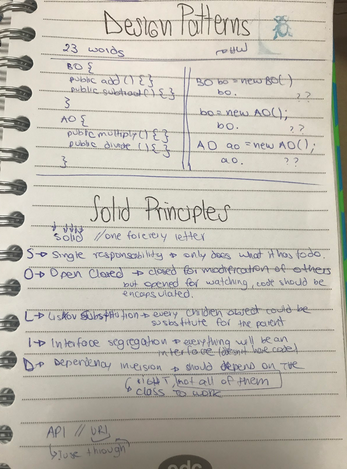 Design Patterns
23 words
BO {
public add () { }
public subtract () { }
}
AO {
public multiply () { }
public divide () { }
}
BO bo = new BO()
bo. ??
bo = new AO();
bo. ??
AO ao = new AO();
ao. ??
Solid Principles
Solid // one for every letter
S→ Single responsability → only does what it has todo.
O→ Open Closed → closed for modification of others
but opened for watching, code should be
encapsulated.
L→ Liskov Substitution → every children would be
substitute for the parent
I→ Interface segregation → everything will be an
interface (doesn't have code)
D→ Dependency inversion → should depend on the
right T, not all of them
class to work
API // URL
use through